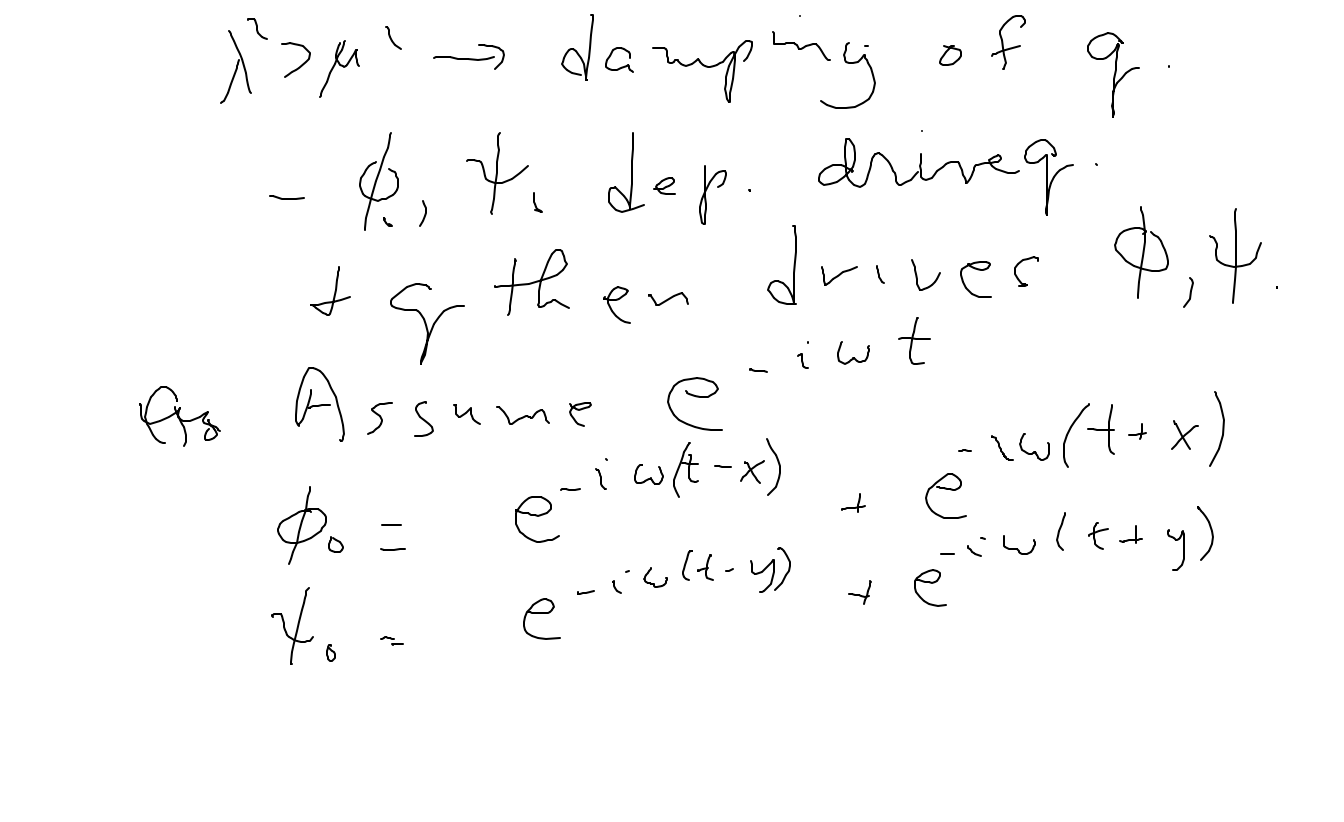 λ² > μ² → damping of q.
- ϕ₀, ψ₀ dep. drive q.
+ q then drives ϕ, ψ.
Assume e^{-iωt}
ϕ₀ = e^{-iω(t-x)} + e^{-iω(t+x)}
ψ₀ = e^{-iω(t-y)} + e^{-iω(t+y)}